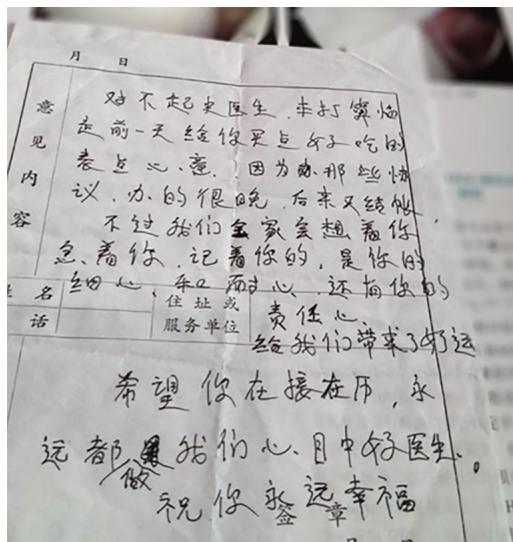 月 日
意见内容
对不起史医生,本打算临
走前一天给你买点好吃的
表点心意,因为办那些
议,办的很晚,后来又结账,
不过我们全家会想着你
念着你,记着你的,是你的
细心,和耐心,还有你的
姓名
住址或
责任心,
话
服务单位
给我们带来了好运
希望你在接在历,永
远都做我们心目中好医生。
祝你永远幸福
签 章